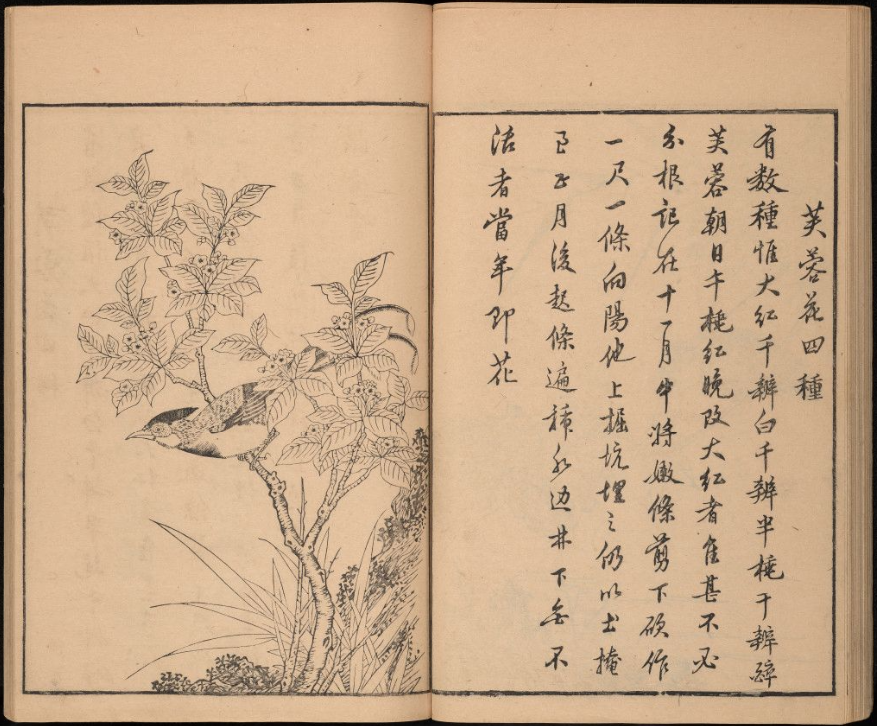 芙蓉花四種
有数種惟大紅千瓣白千瓣半桃千瓣醉
芙蓉朝白午桃紅晚改大紅者隹甚不必
分根記在十一月中將嫩條剪下砍作
一尺一條向陽地上掘坑埋之仍以土掩
已正月後起條遍種水边井下無不
活者當年即花